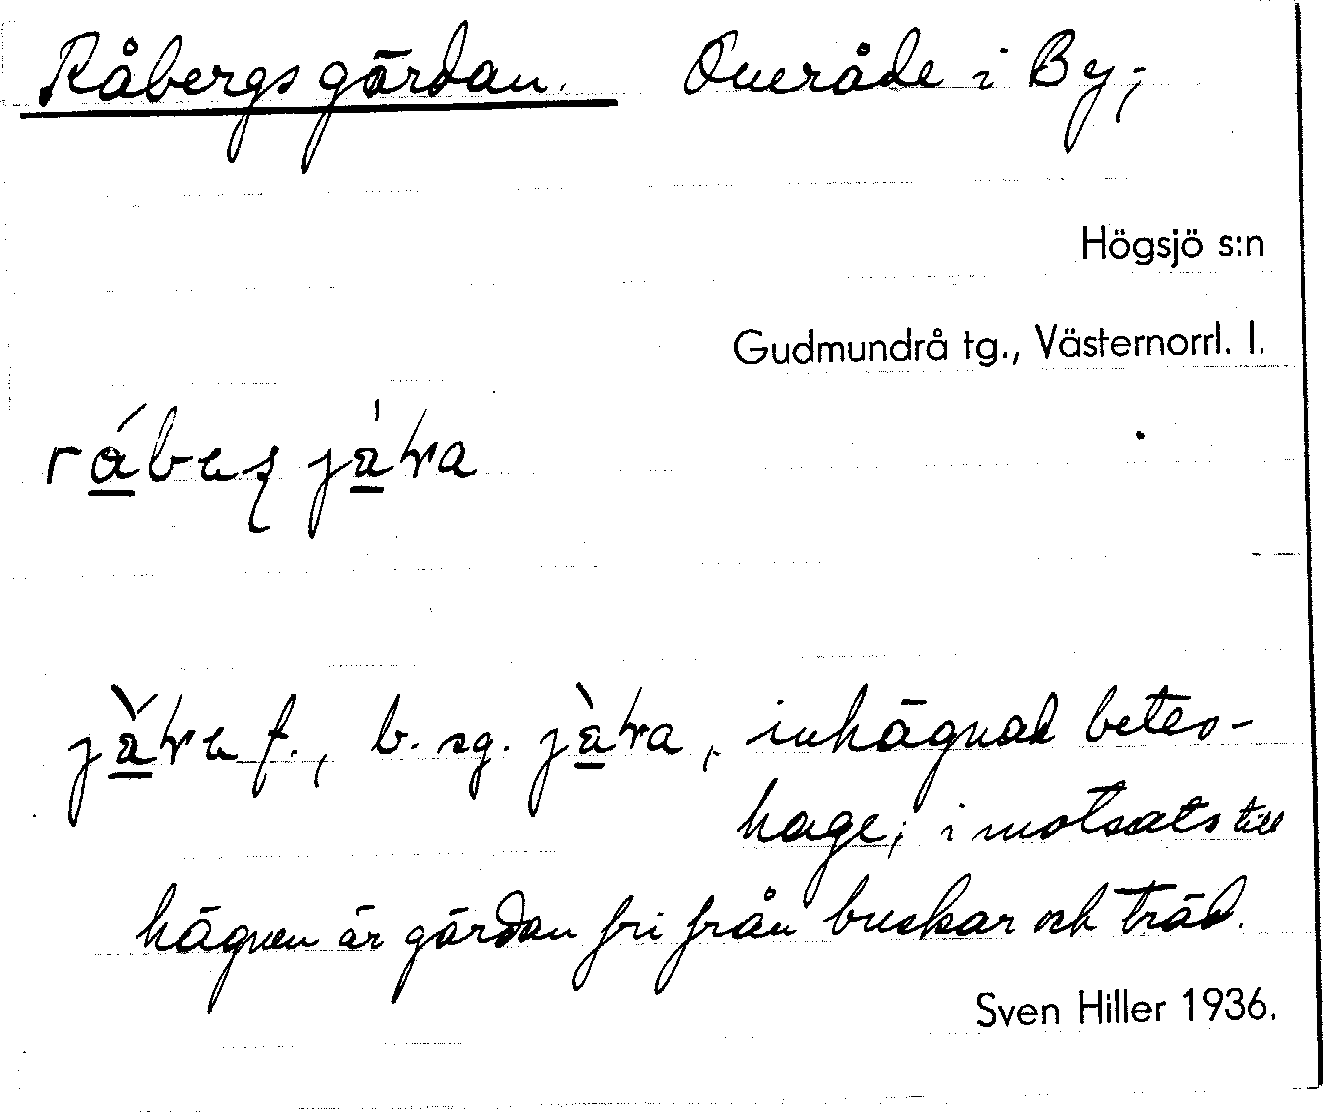 Råbergsgärdan. Område i By;
Högsjö s:n
Gudmundrå tg., Västernorrl. l.
f., b. sg. , inhägnad betes-
hage; i motsats till
hägnen är gärdan fri från buskar och träd.
Sven Hiller 1936.